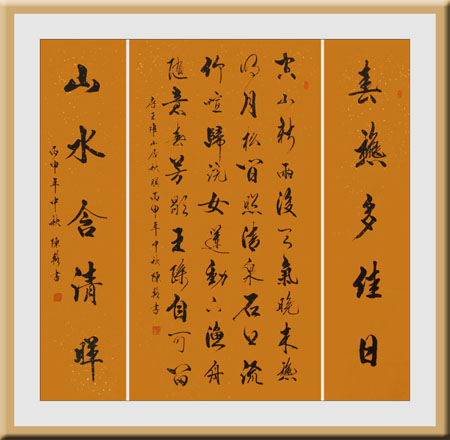 春龝多佳日
空山新雨後天氣晚來龝
明月松間照清泉石上流
竹喧歸浣女蓮動下漁舟
隨意春芳歇王孫自可留
王維山居秋暝丙申年中秋陳書
山水含清暉
丙申年中秋陳書